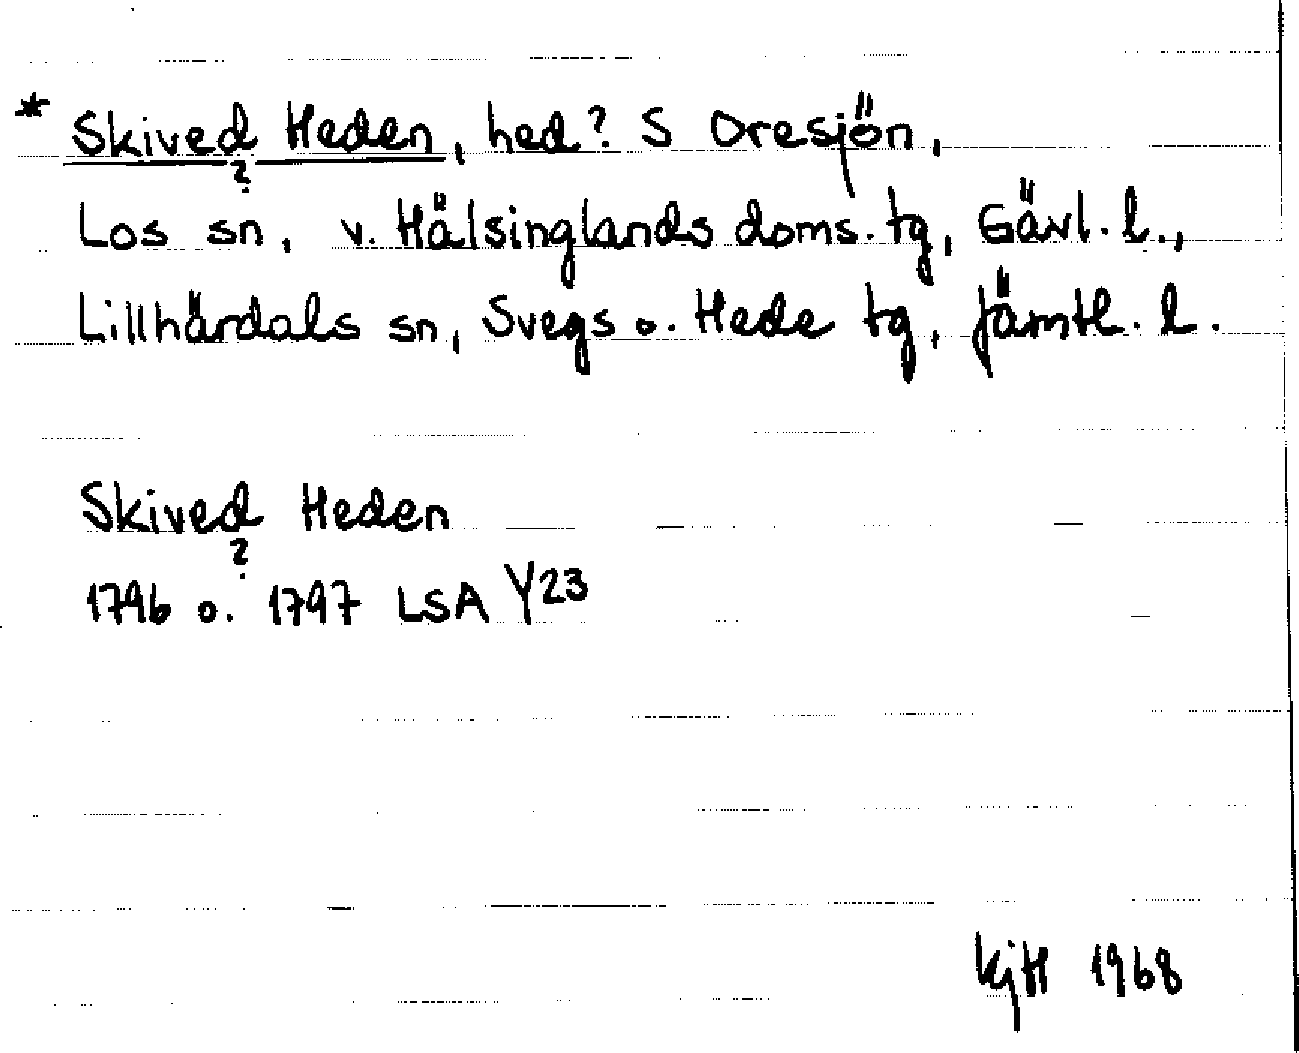 * Skived Heden, hed? S Oresjön,
?
Los sn, v. Hälsinglands doms. tg, Gävl. l.,
Lillhärdals sn, Svegs o. Hede tg, Jämtl. l.
Skived Heden
?
1796 o. 1797 LSA Y23
KjH 1968